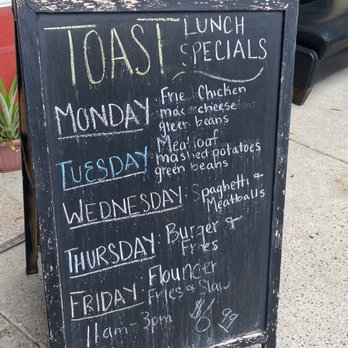 TOAST LUNCH SPECIALS
MONDAY: Fried Chicken
mac n cheese
green beans
TUESDAY: Meatloaf
mashed potatoes
green beans
WEDNESDAY: Spaghetti &
Meatballs
THURSDAY: Burger &
Fries
FRIDAY: Flounder
Fries & Slaw
11am-3pm $6.99